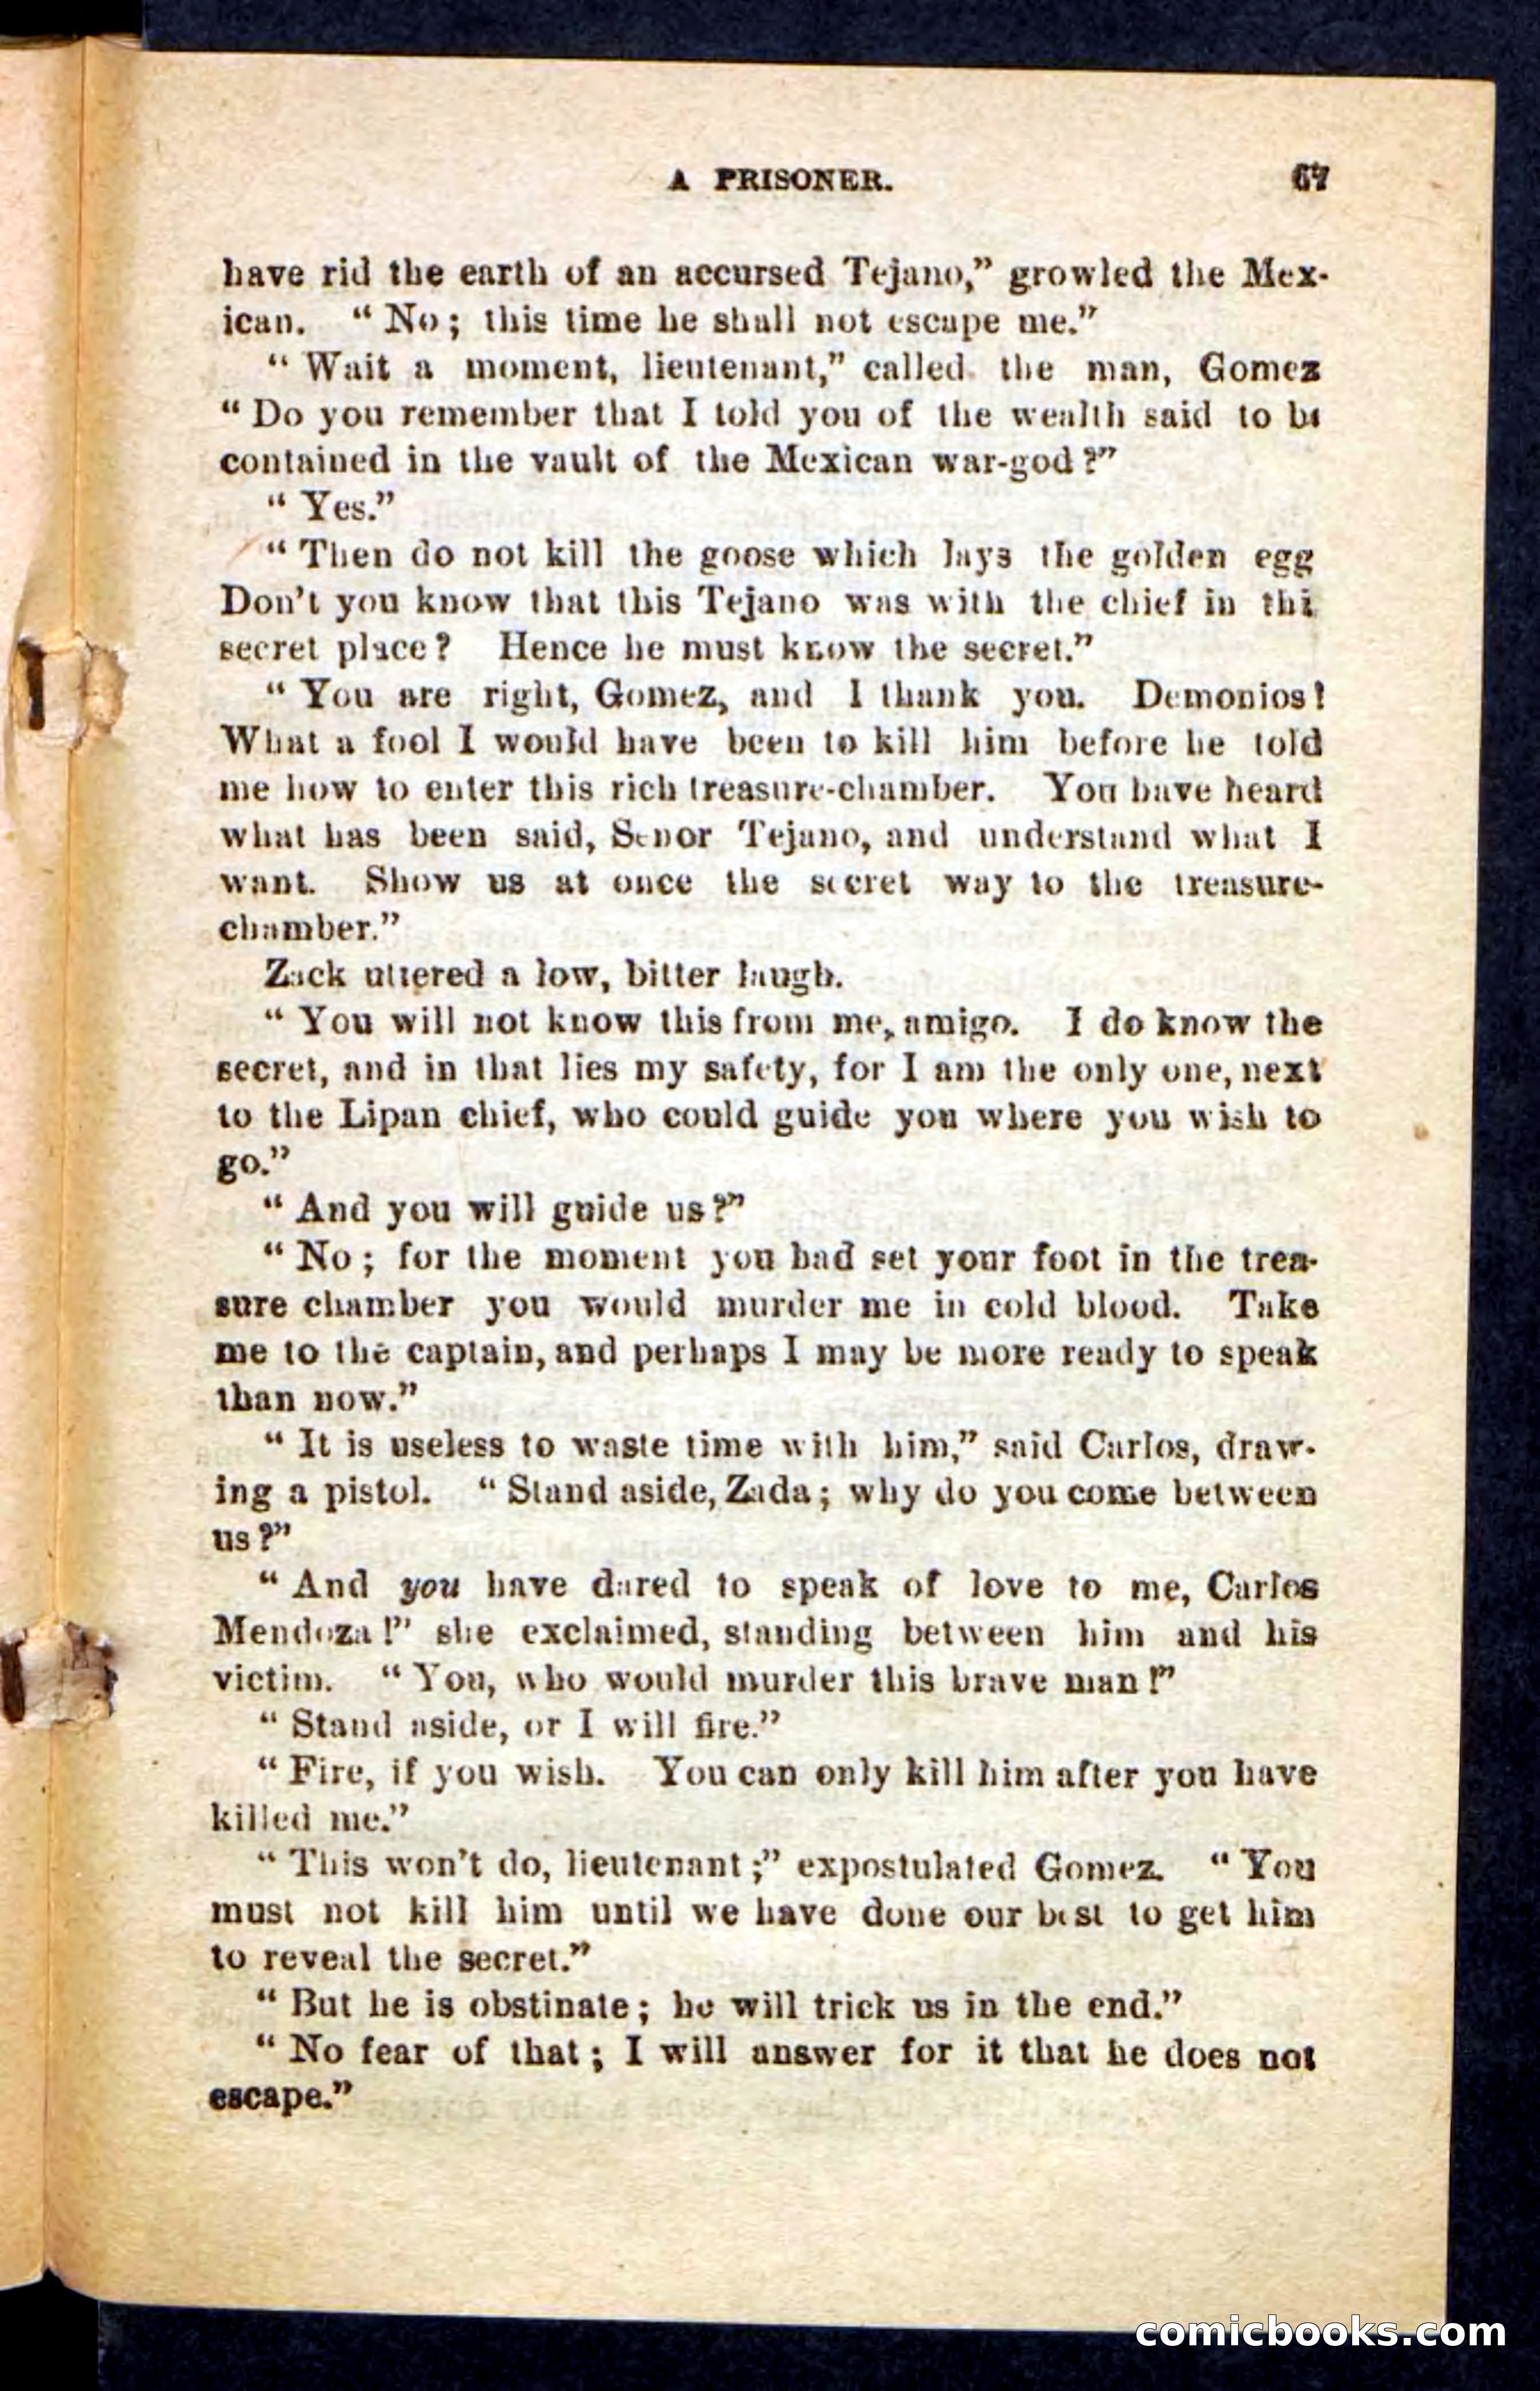 A PRISONER. 67
have rid the earth of an accursed Tejano,” growled the Mex-
ican. “No; this time he shall not escape me.”
“Wait a moment, lieutenant,” called the man, Gomez
“Do you remember that I told you of the wealth said to be
contained in the vault of the Mexican war-god?”
“Yes.”
“Then do not kill the goose which lays the golden egg
Don’t you know that this Tejano was with the chief in thi
secret place? Hence he must know the secret.”
“You are right, Gomez, and I thank you. Demonios!
What a fool I would have been to kill him before he told
me how to enter this rich treasure-chamber. You have heard
what has been said, Senor Tejano, and understand what I
want. Show us at once the secret way to the treasure-
chamber.”
Zack uttered a low, bitter laugh.
“You will not know this from me, amigo. I do know the
secret, and in that lies my safety, for I am the only one, next
to the Lipan chief, who could guide you where you wish to
go.”
“And you will guide us?”
“No; for the moment you had set your foot in the trea-
sure chamber you would murder me in cold blood. Take
me to the captain, and perhaps I may be more ready to speak
than now.”
“It is useless to waste time with him,” said Carlos, draw-
ing a pistol. “Stand aside, Zada; why do you come between
us?”
“And you have dared to speak of love to me, Carlos
Mendoza!” she exclaimed, standing between him and his
victim. “You, who would murder this brave man!”
“Stand aside, or I will fire.”
“Fire, if you wish. You can only kill him after you have
killed me.”
“This won’t do, lieutenant;” expostulated Gomez. “You
must not kill him until we have done our best to get him
to reveal the secret.”
“But he is obstinate; he will trick us in the end.”
“No fear of that; I will answer for it that he does not
escape.”
comicbooks.com